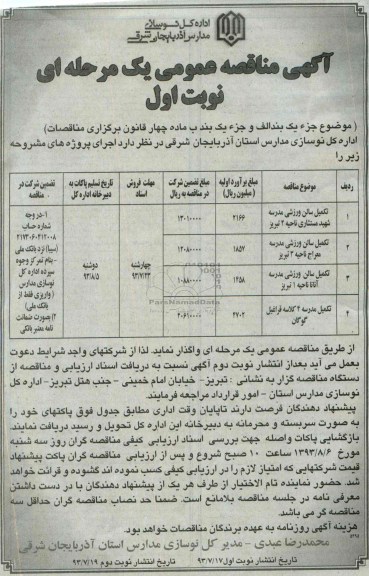 اداره کل نوسازی
مدارس آذربایجان شرقی
آگهی مناقصه عمومی یک مرحله ای
نوبت اول
( موضوع جزء یک بندالف و جزء یک بند ب ماده چهار قانون برگزاری مناقصات)
اداره کل نوسازی مدارس استان آذربایجان شرقی در نظر دارد اجرای پروژه های مشروحه
زیر را
ردیف
موضوع مناقصه
مبلغ برآورد اولیه (میلیون ریال)
مبلغ تضمین شرکت در مناقصه به ریال
مهلت فروش اسناد
تاریخ تسلیم پاکات به دبیرخانه اداره کل
تضمین شرکت در مناقصه
۱
تکمیل سالن ورزشی مدرسه
شهید مستشاری ناحیه ۲ تبریز
۲۱۶۶
۱۳۰۱۰۰۰۰
۲
تکمیل سالن ورزشی مدرسه
معراج ناحیه ۲ تبریز
۱۸۵۷
۱۲۰۸۰۰۰۰
۳
تکمیل سالن ورزشی مدرسه
آنانا ناحیه ۲ تبریز
۱۴۵۸
۱۰۸۸۰۰۰۰
۴
تکمیل مدرسه ۴ کلاسه قراغیل
گوگان
۴۷۰۲
۲۰۶۱۰۰۰۰
چهارشنبه
۹۳/۷/۲۳
دوشنبه
۹۳/۸/۵
۱-در وجه
شماره حساب
۲۱۷۳۰۶۰۲۱۲۰۰۸
(سیبا) نزد بانک ملی
-بنام تمرکز وجوه
سپرده اداره کل
نوسازی مدارس
(واریزی فقط از
بانک ملی)
۲) بصورت ضمانت
نامه معتبر بانکی
ParsNamadData
از طریق مناقصه عمومی یک مرحله ای واگذار نماید. لذا از شرکتهای واجد شرایط دعوت
بعمل می آید بعداز انتشار نوبت دوم آگهی نسبت به دریافت اسناد ارزیابی و مناقصه از
دستگاه مناقصه گزار به نشانی : تبریز- خیابان امام خمینی - جنب هتل تبریز- اداره کل
نوسازی مدارس استان - امور قرارداد مراجعه فرمایند.
پیشنهاد دهندگان فرصت دارند تاپایان وقت اداری مطابق جدول فوق پاکتهای خود را
به صورت سربسته و محرمانه به دبیرخانه این اداره کل تحویل و رسید دریافت نمایند.
بازگشایی پاکات واصله جهت بررسی اسناد ارزیابی کیفی مناقصه گران روز سه شنبه
مورخ ۱۳۹۳/۸/۶ ساعت ۱۰ صبح شروع و پس از ارزیابی مناقصه گران پاکت پیشنهاد
قیمت شرکتهایی که امتیاز لازم را در ارزیابی کیفی کسب نموده اند گشوده و قرائت خواهد
شد. حضور نماینده تام الاختیار از طرف هر یک از پیشنهاد دهندگان با در دست داشتن
معرفی نامه در جلسه مناقصه بلامانع است. ضمنا حد نصاب مناقصه گران حداقل سه
مناقصه گر می باشد.
هزینه آگهی روزنامه به عهده برندگان مناقصات خواهد بود.
محمدرضا عبدی - مدیر کل نوسازی مدارس استان آذربایجان شرقی
تاریخ انتشار نوبت اول ۹۳/۷/۱۷ تاریخ انتشار نوبت دوم ۹۳/۷/۱۹